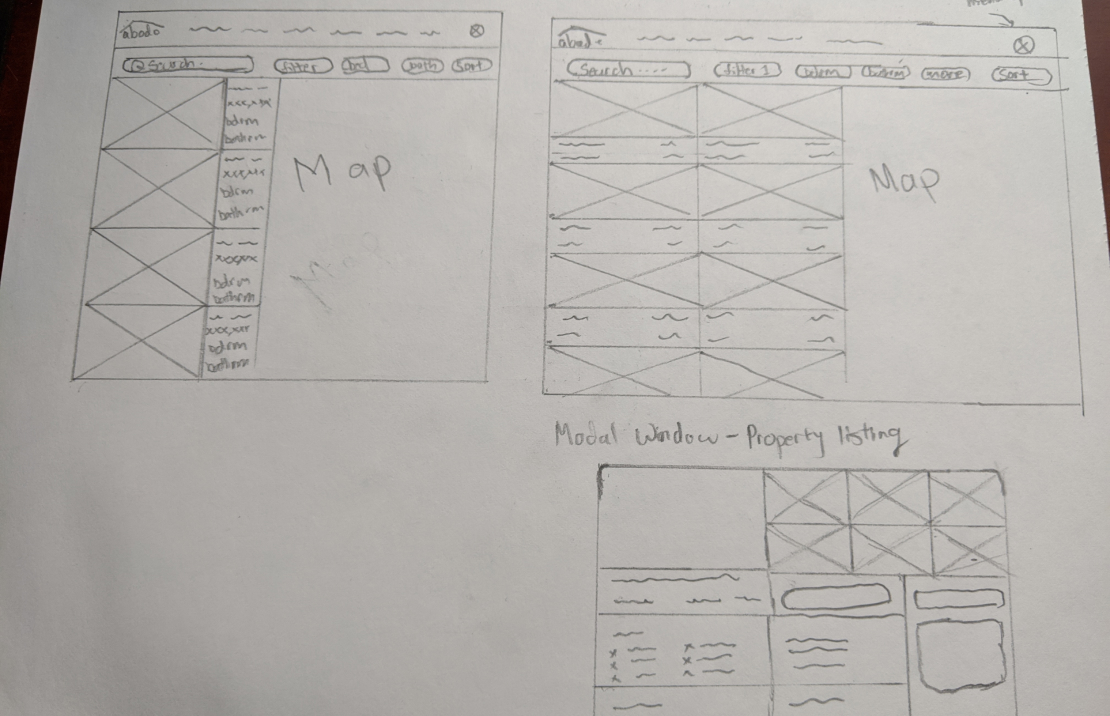 abodo
Search.
filter
bed
bath
Sort
xxx,xxx
bdrm
bathrm
xxx,xxx
bdrm
bathrm
xxx,xxx
bdrm
bathrm
xxx,xxx
bdrm
bathrm
Map
abodo
Search ....
filter 1
bdrm
bathrm
more
Sort
Map
Modal Window - Property listing